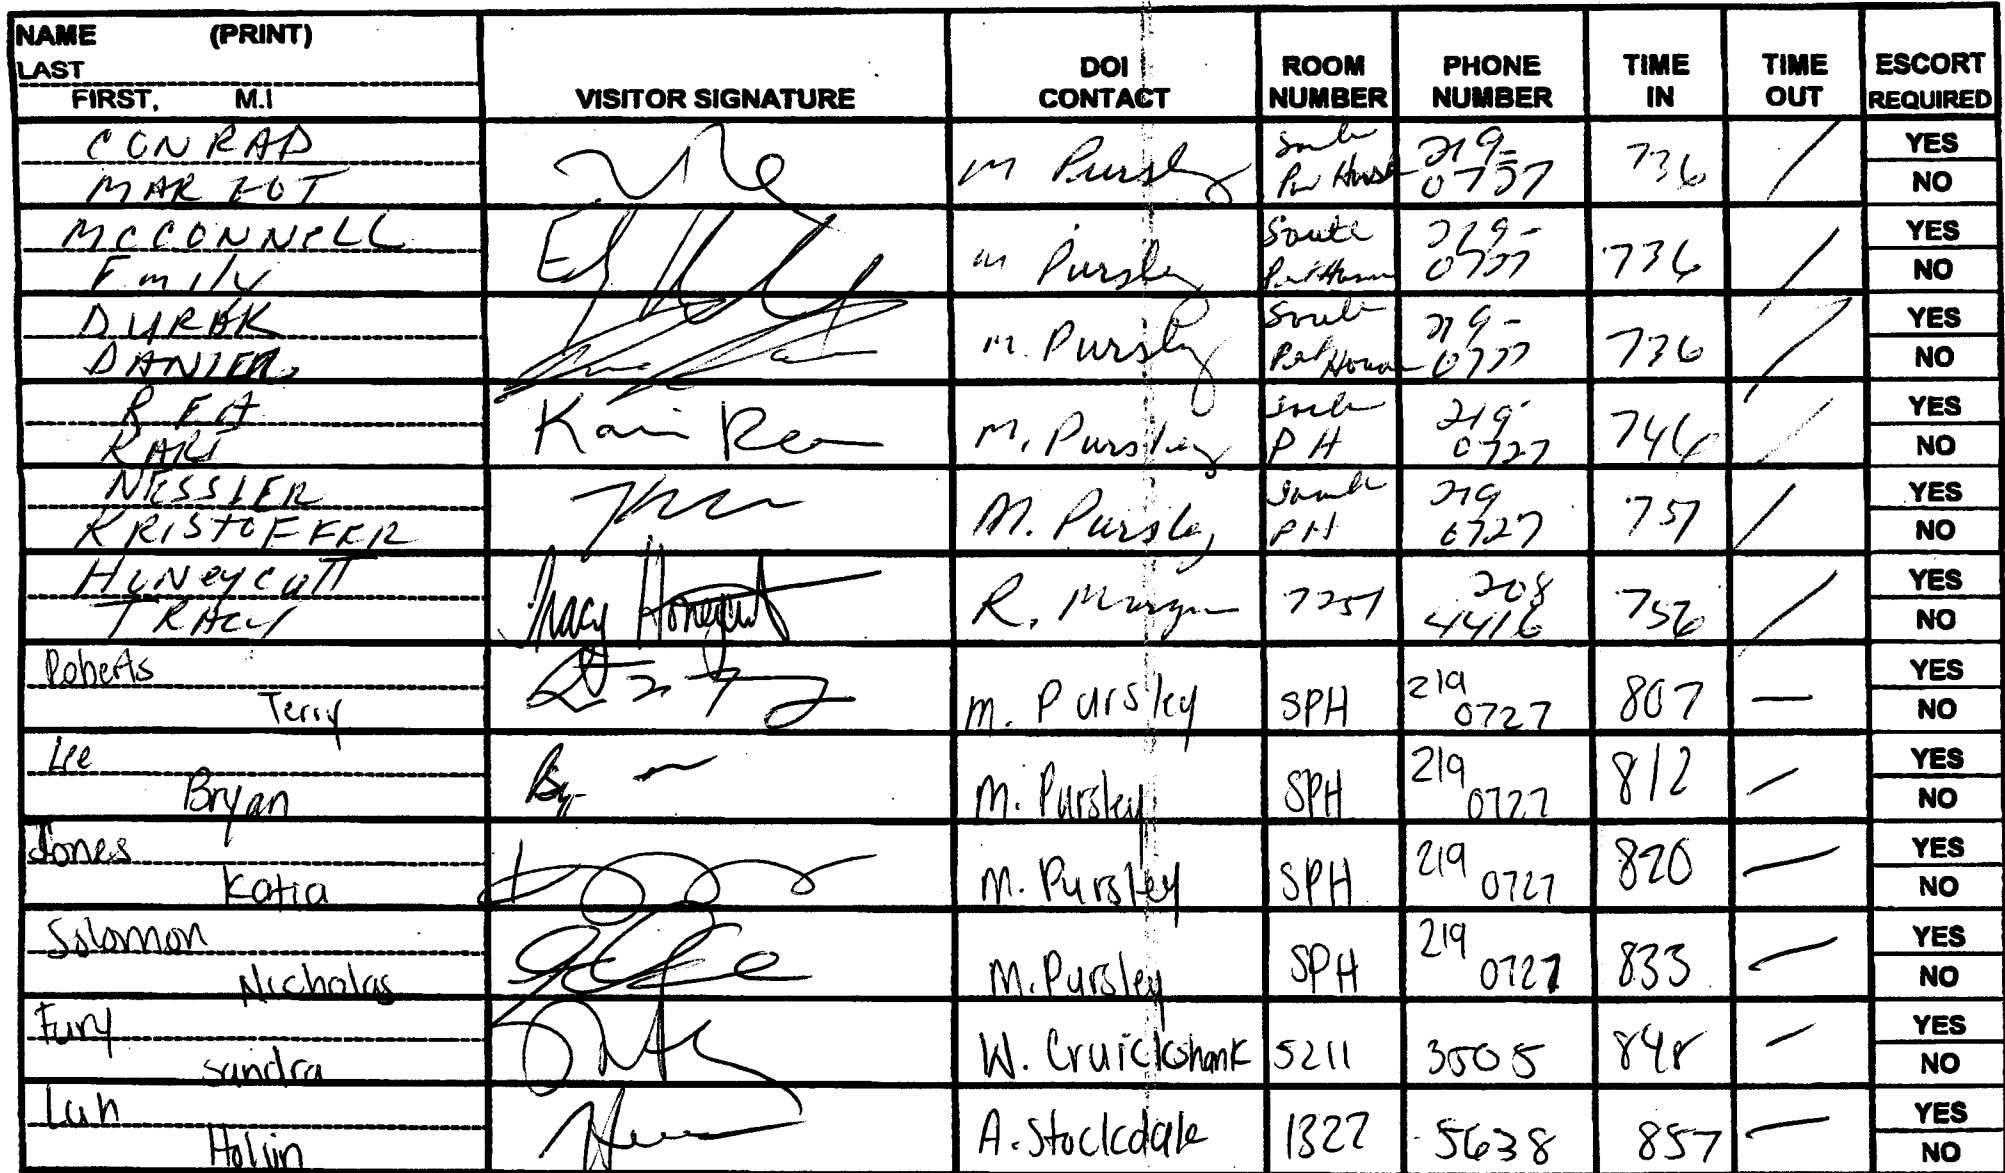 NAME (PRINT)
LAST
FIRST, M.I
VISITOR SIGNATURE
DOI CONTACT
ROOM NUMBER
PHONE NUMBER
TIME IN
TIME OUT
ESCORT REQUIRED
CONRAD
MARGOT
M Pursley
South
219-
736
YES
NO
MCCONNELL
Emily
M Pursley
South
219-
736
YES
NO
DURAK
DANIEL
M. Pursley
South
219-
736
YES
NO
REA
KARI
Kari Rea
M. Pursley
South
PH
219-
0727
746
YES
NO
NESSLER
KRISTOFFER
M. Pursley
South
PH
219
0727
757
YES
NO
HUNEYCUTT
TRACY
Tracy Honeycutt
R. Morgan
7251
208
4416
756
YES
NO
Roberts
Terry
M. Pursley
SPH
219
0727
807
—
YES
NO
Lee
Bryan
M. Pursley
SPH
219
0727
812
YES
NO
Jones
Katia
M. Pursley
SPH
219
0727
820
YES
NO
Solomon
Nicholas
M. Pursley
SPH
219
0727
833
YES
NO
Fury
Sandra
W. Cruickshank
5211
3005
848
YES
NO
A. Stockdale
1327
5638
857
YES
NO